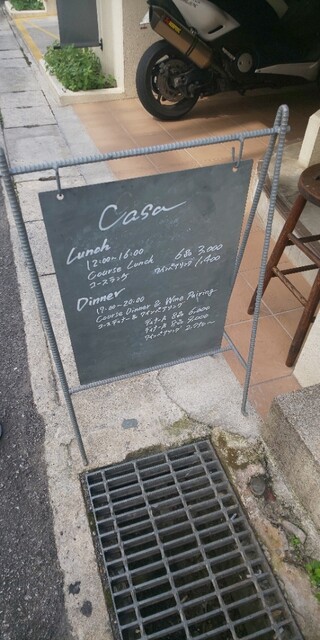 Casa
Lunch
12:00~16:00
Course Lunch 6品 3,000
コースランチ ワインペアリング 1,400
Dinner
17:00~20:00
Course Dinner & Wine Pairing
コースディナー & ワインペアリング
ディナーA 8品 6,000
ディナーB 8品 8,000
ワインペアリング